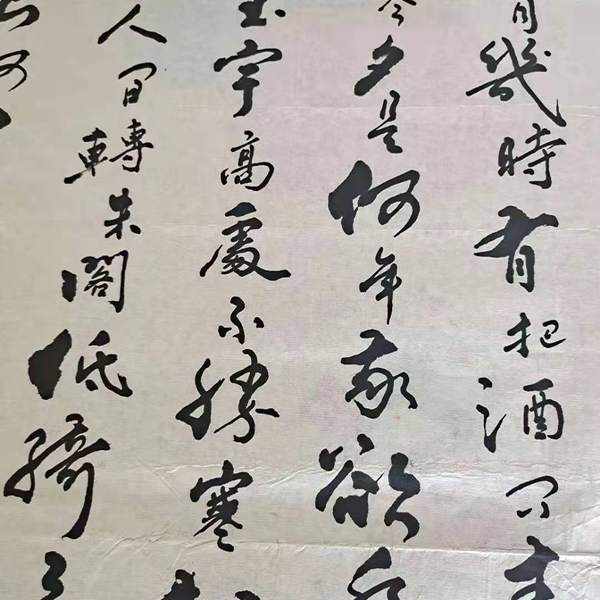 月幾時有把酒问青
今夕是何年我欲乘
玉宇高處不勝寒
人间轉朱閣低綺